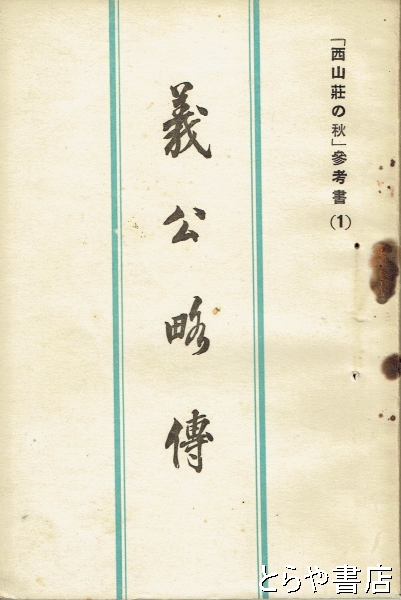 「西山莊の秋」參考書(1)
義公略傳
とらや書店